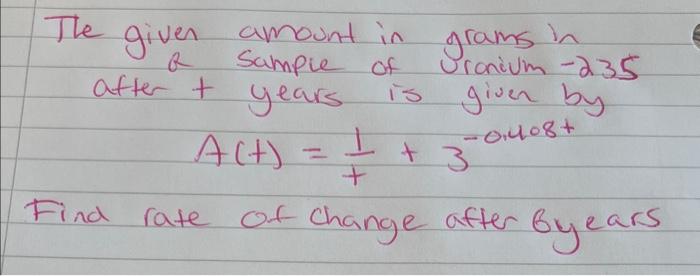 The given amount in grams in
a sample of Uranium -235
after t years is given by
A(t) = 1/t + 3^-0.408t
Find rate of change after 6years